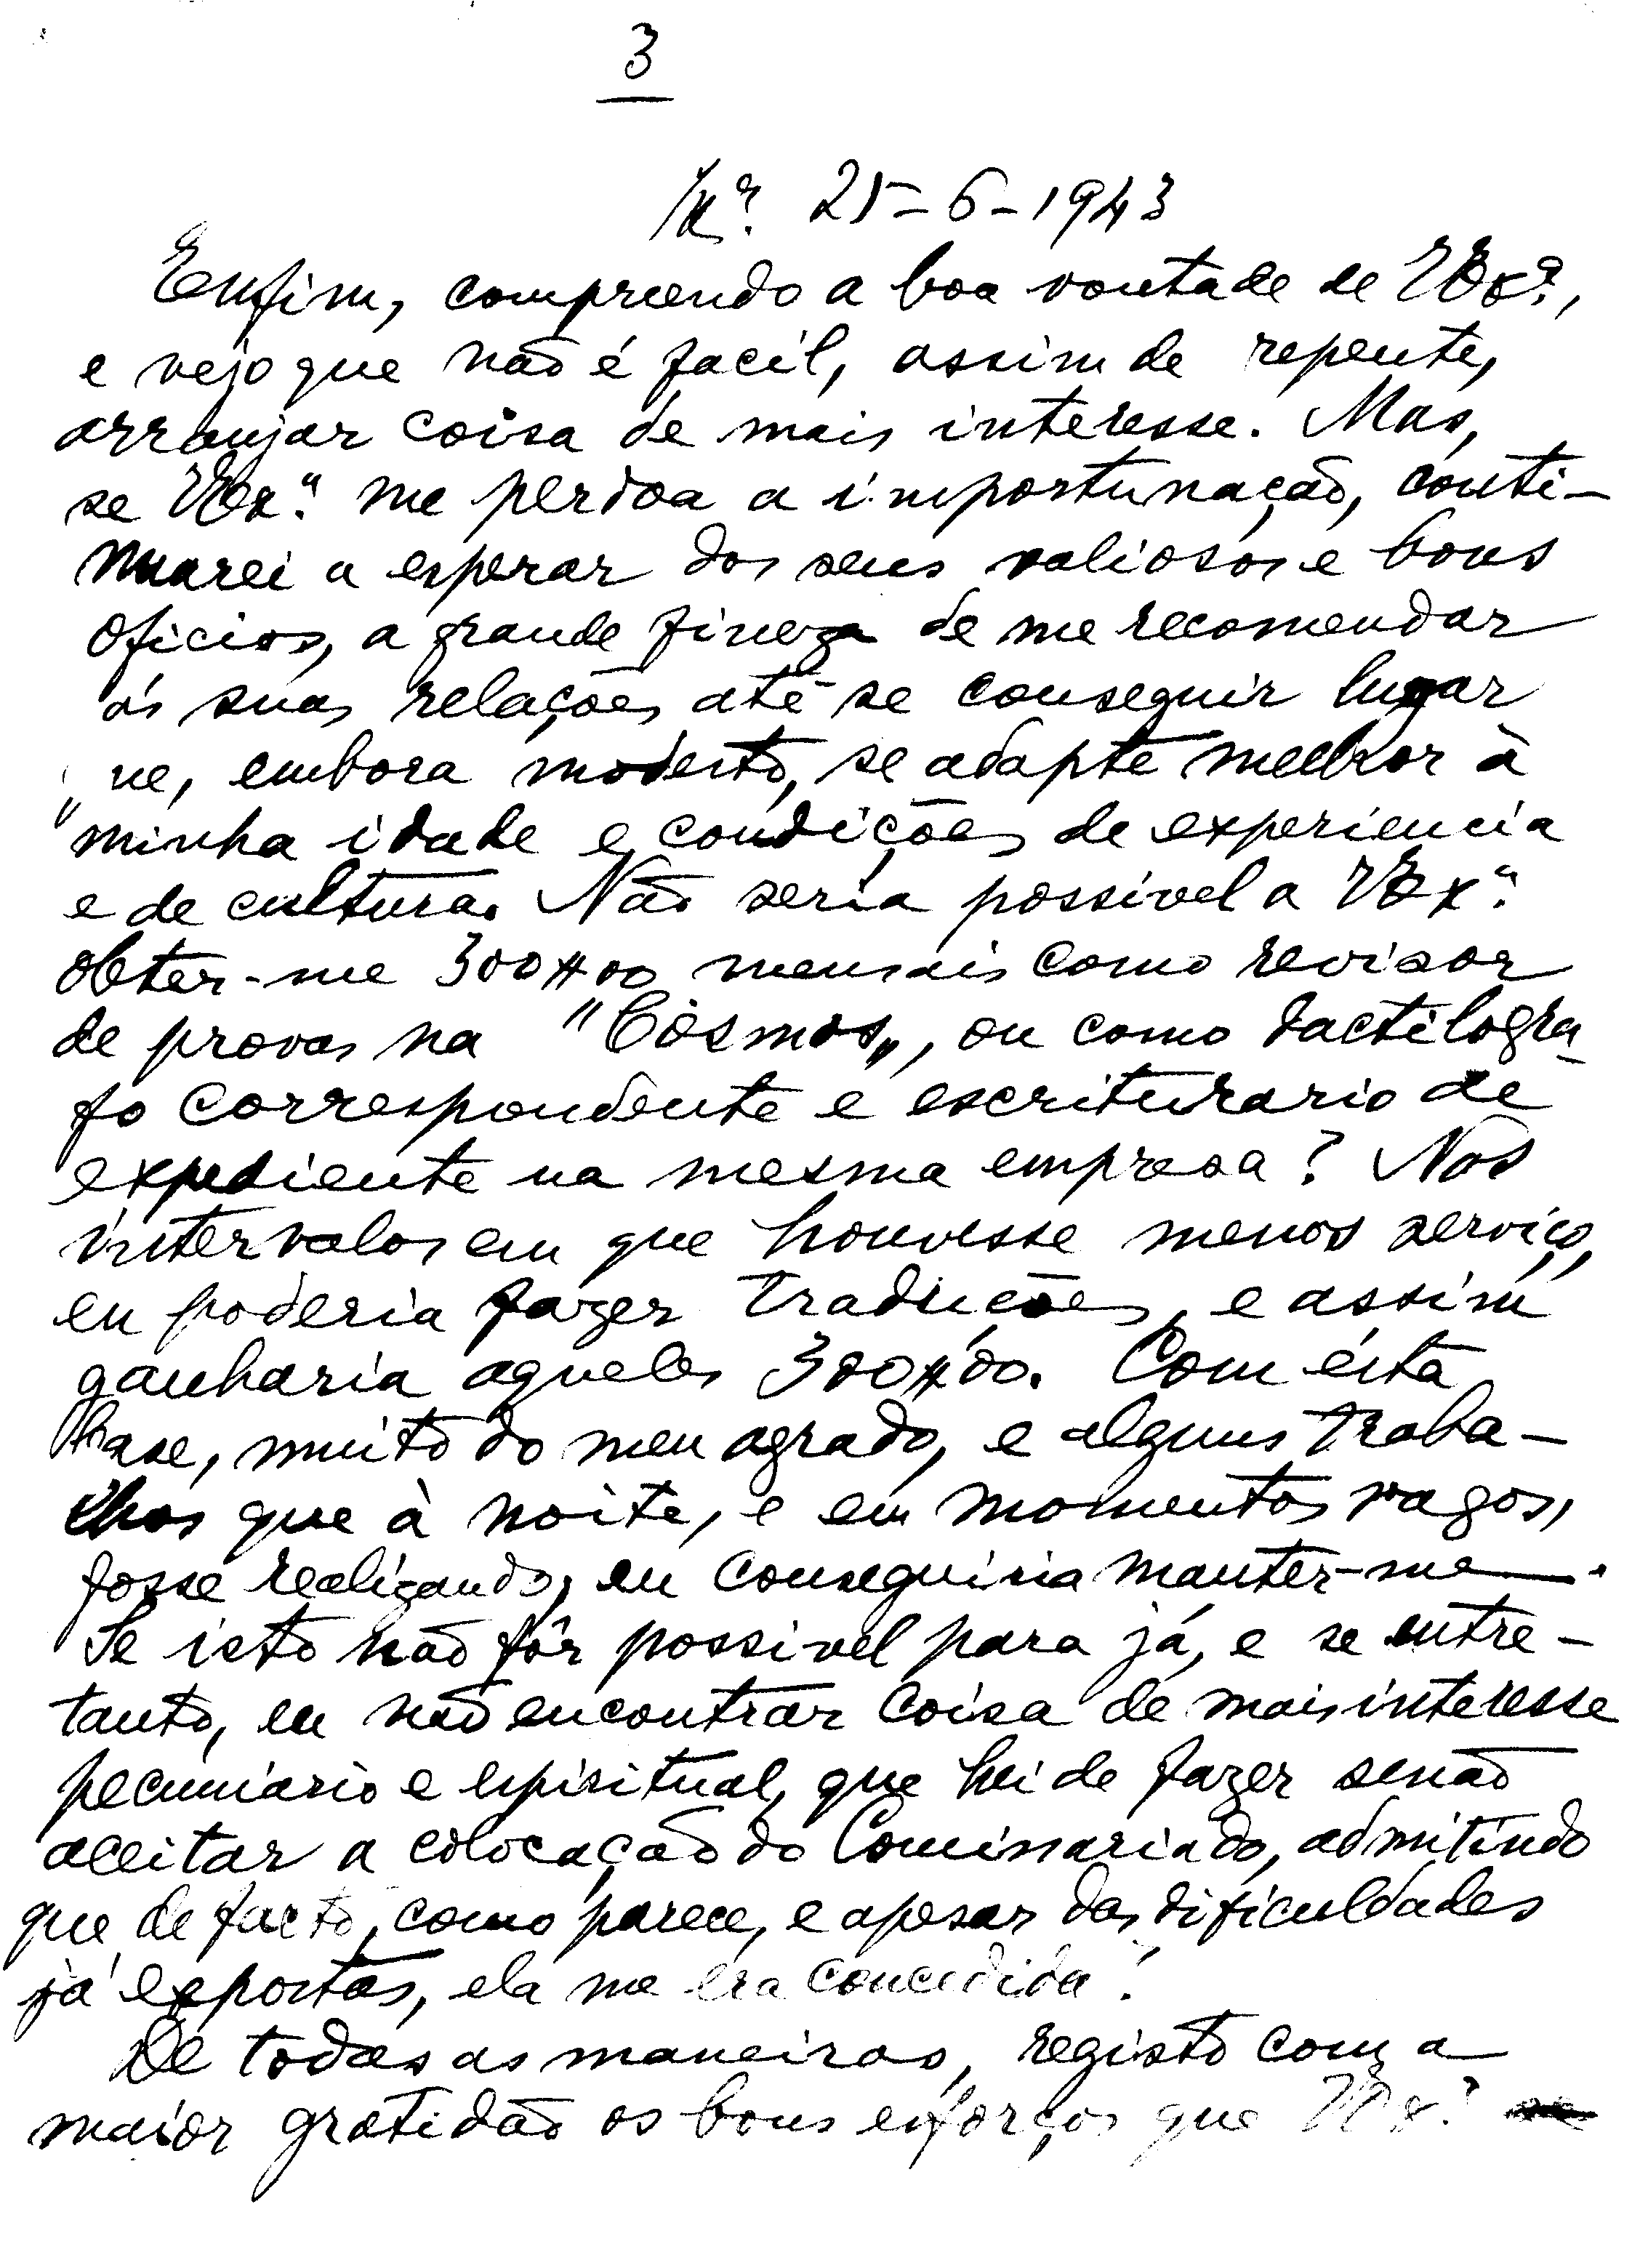 3
25-6-1943
Enfim, compreendo a boa vontade de VEx.ª,
e vejo que não é facil, assim de repente,
arranjar coisa de mais interesse. Mas,
se VEx.ª me perdoa a importunação, conti-
nuarei a esperar dos seus valiosos e bons
oficios, a grande fineza de me recomendar
ás suas relações até se conseguir lugar
ue, embora modesto, se adapte melhor à
minha idade e condições de experiencia
e de cultura. Não seria possivel a VEx.ª
obter-me 300$00 mensais como revisor
de provas na "Cósmos", ou como dactilogra-
fo correspondente e escriturario de
expediente na mesma empresa? Nos
intervalos em que houvesse menos serviço,
eu poderia fazer traduções, e assim
ganharia aqueles 300$00. Com ésta
base, muito do meu agrado, e alguns traba-
lhos que à noite, e em momentos vagos,
fosse realizando, eu conseguiria manter-me.
Se isto não fôr possivel para já, e se entre-
tanto, eu não encontrar coisa de mais interesse
pecuniario e espiritual, que hei de fazer senão
aceitar a colocação do Comissariado, admitindo
que de facto, como parece, e apesar das dificuldades
já expostas, ela me era concedida!
De todas as maneiras, registo com a
maior gratidão os bons esforços que VEx.ª